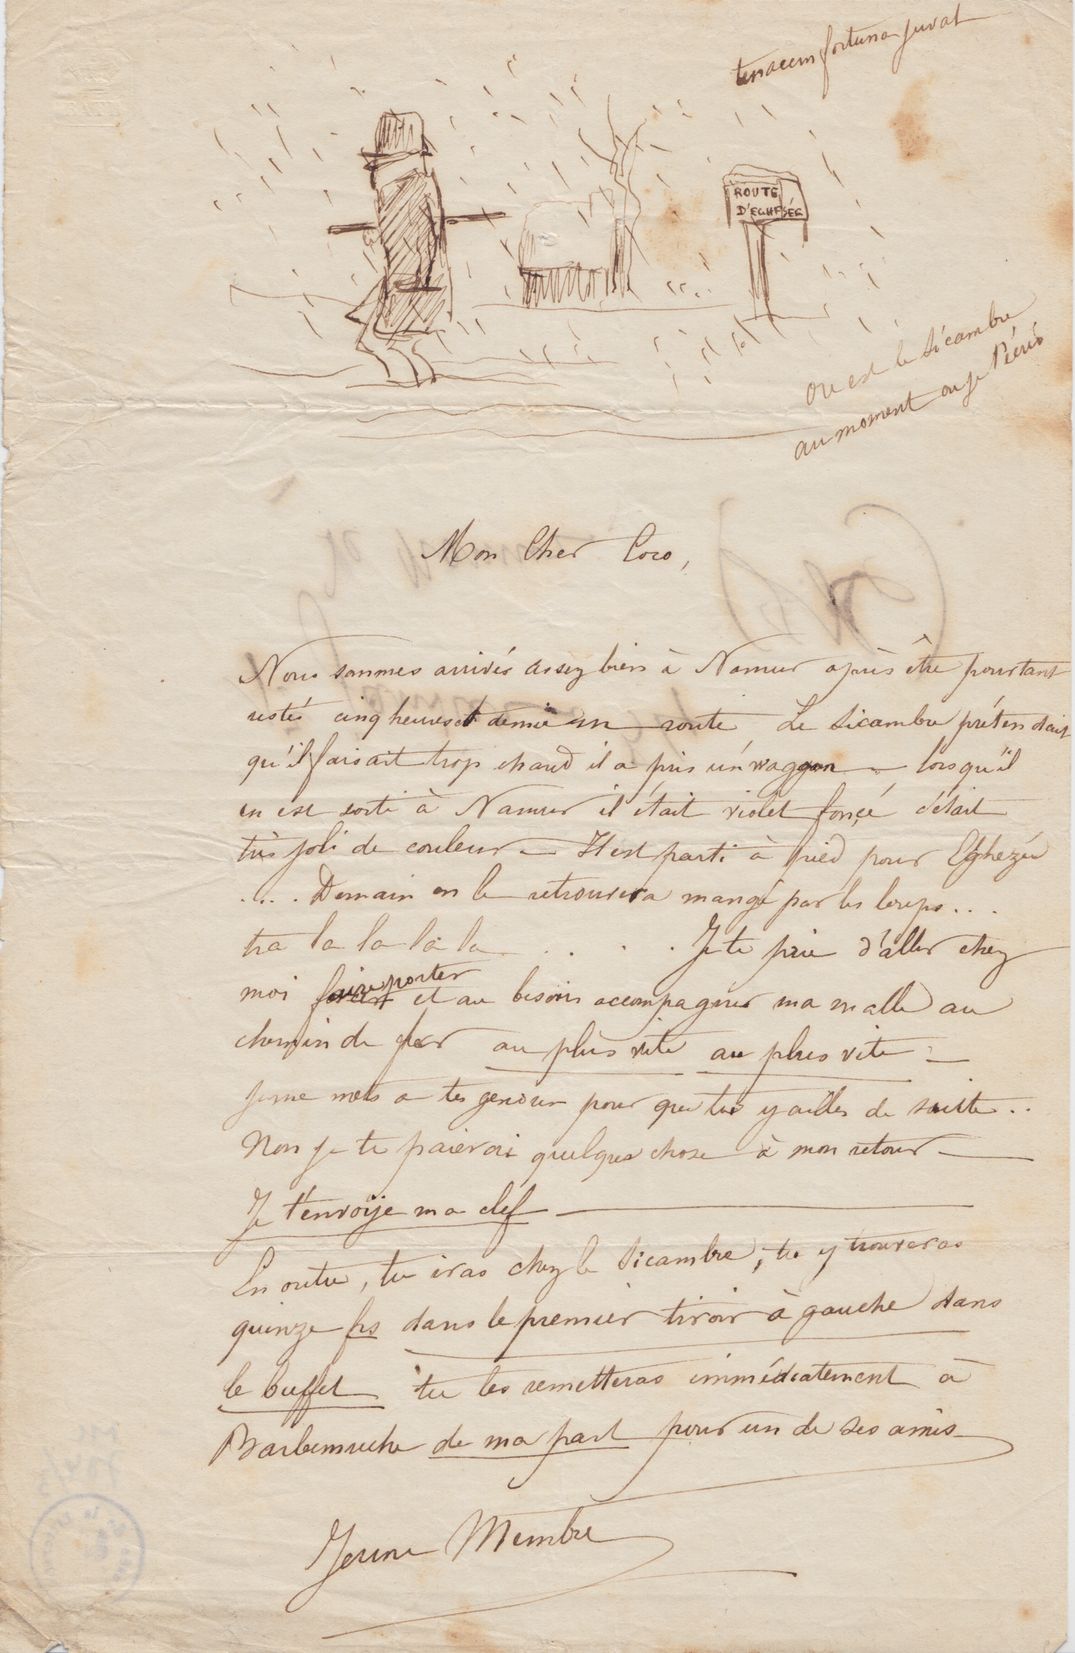 tenacem fortuna juvat
ROUTE
D'EGHESÉE
où est le Sicambre
au moment ou je t'écris
Mon Cher Coco,
Nous sommes arrivés assez bien à Namur après être pourtant
restés cinq heures et demie en route Le Sicambre prétendait
qu'il faisait trop chaud il a pris un waggon — lorsqu'il
en est sorti à Namur il était violet foncé c'était
très joli de couleur — Il est parti à pied pour Eghezée
.... Demain on le retrouvera mangé par les loups ...
tra la la la la . . . . Je te prie d'aller chez
moi faire porter et au besoin accompagner ma malle au
chemin de fer au plus vite au plus vite —
je me mets a tes genoux pour que tu y ailles de suite ..
Non je te paierai quelque chose à mon retour —
Je t'envoÿe ma clef —
En outre, tu iras chez le Sicambre, tu y trouveras
quinze frs dans le premier tiroir à gauche dans
le buffet tu les remetteras immédiatement à
Barbemuche de ma part pour un de ses amis
Jeune Membre